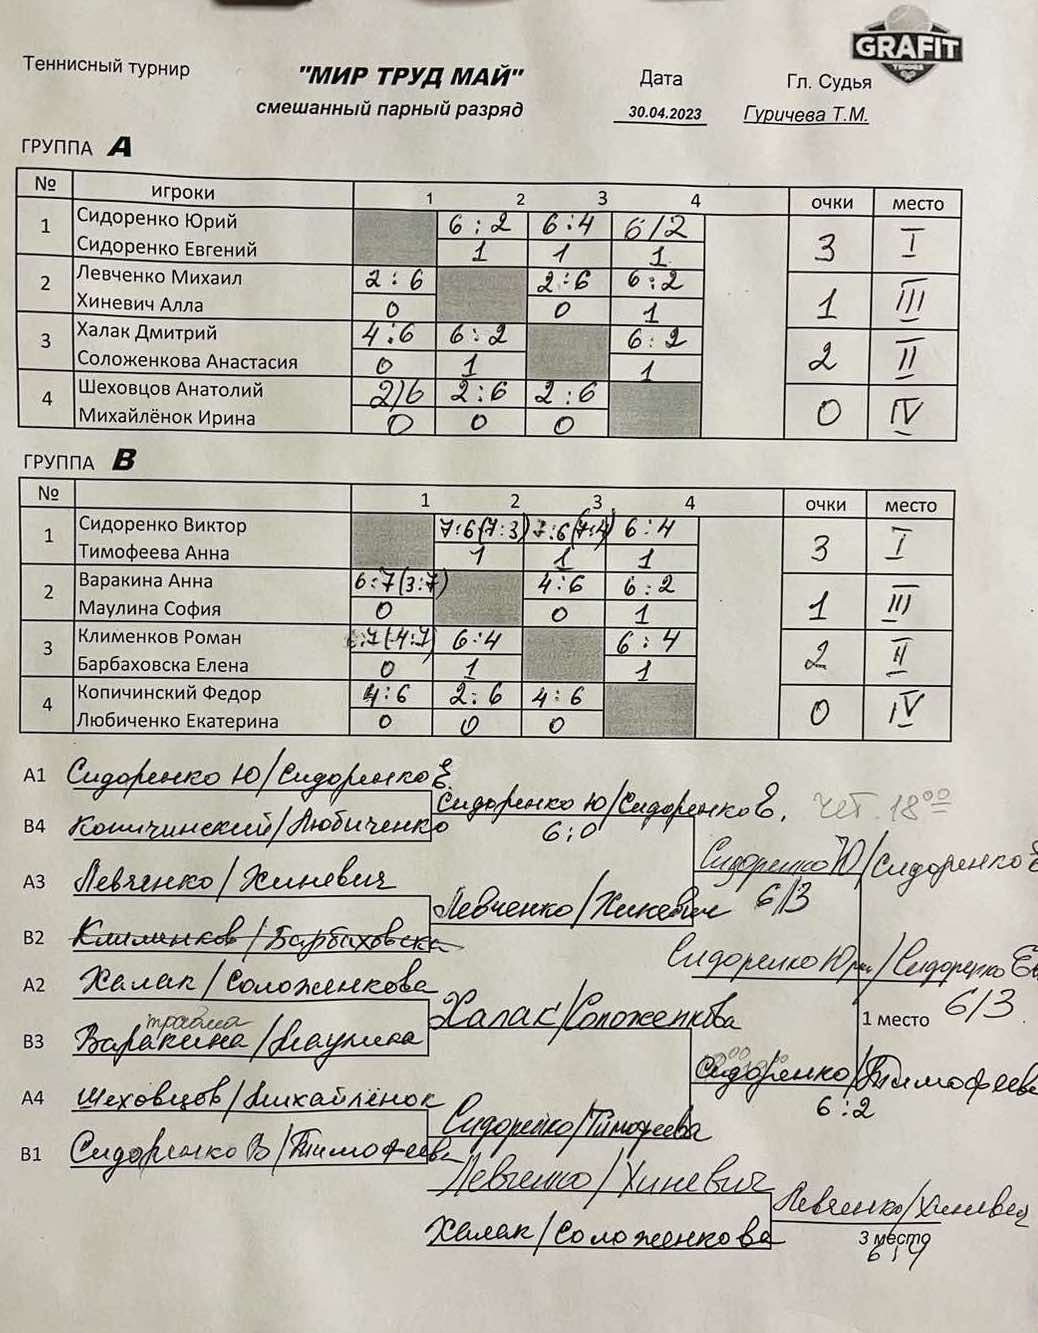 GRAFIT
Теннисный турнир "МИР ТРУД МАЙ" Дата Гл. Судья
смешанный парный разряд 30.04.2023 Гуричева Т.М.
ГРУППА A
№ игроки 1 2 3 4 очки место
1 Сидоренко Юрий 6:2 6:4 6/2 3 I
Сидоренко Евгений 1 1 1
2 Левченко Михаил 2:6 2:6 6:2 1 III
Хиневич Алла 0 0 1
3 Халак Дмитрий 4:6 6:2 6:2 2 II
Соложенкова Анастасия 0 1 1
4 Шеховцов Анатолий 2/6 2:6 2:6 0 IV
Михайлёнок Ирина 0 0 0
ГРУППА B
№ 1 2 3 4 очки место
1 Сидоренко Виктор 7:6(7:3) 7:6(7:4) 6:4 3 I
Тимофеева Анна 1 1 1
2 Варакина Анна 6:7(3:7) 4:6 6:2 1 III
Маулина София 0 0 1
3 Клименков Роман 6:7(4:7) 6:4 6:4 2 II
Барбаховска Елена 0 1 1
4 Копичинский Федор 4:6 2:6 4:6 0 IV
Любиченко Екатерина 0 0 0
A1 Сидоренко Ю/Сидоренко Е.
Сидоренко Ю/Сидоренко Е. чет. 18⁰⁰
B4 Копичинский/Любиченко
6:0
Сидоренко Ю/Сидоренко Е
A3 Левченко/Хиневич
6/3
Левченко/Хиневич
B2 Клименков/Барбаховска
Сидоренко Юрий/Сидоренко Ев
A2 Халак/Соложенкова
6/3
1 место
Халак/Соложенкова
травма
B3 Варакина/Маулина
Сидоренко/Тимофеева
6:2
A4 Шеховцов/Михайлёнок
Сидоренко/Тимофеева
B1 Сидоренко В/Тимофеева
Левченко/Хиневич
Левченко/Хиневич
Халак/Соложенкова
3 место
6:4